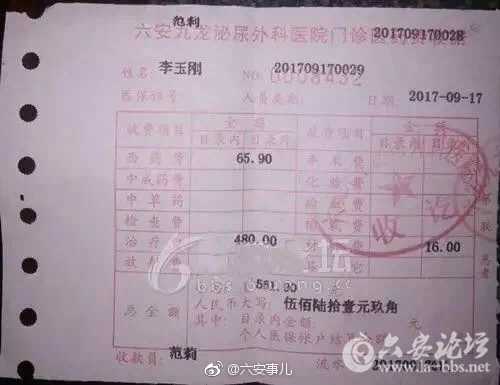 范利
六安九龙泌尿外科医院门诊医药费收据
201709170028
姓名 李玉刚 NO: 201709170029
0008432
医保证号 人员类别: 日期: 2017-09-17
收费项目 金额 收费项目 金额
目录内 目录外 目录内 目录外
西药费 65.90 手术费
中成药费 化验费
中草药
检查费
治疗费 480.00 16.00
放射费 其它
561.90
总金额 人民币大写: 伍佰陆拾壹元玖角
其中: 目录内金额: 元
个人医保帐户结算金额
收款员: 范莉 流水
收讫
@六安事儿
六安论坛
www.labbs.net